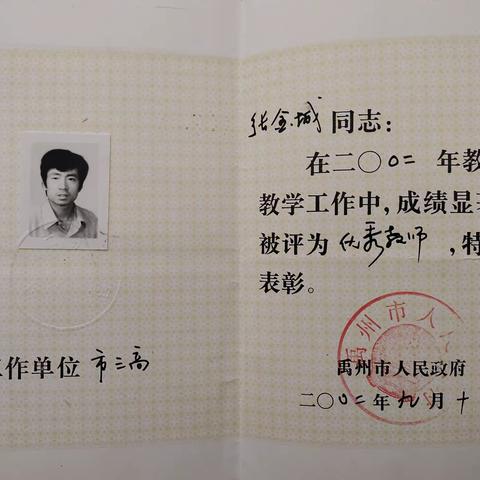 工作单位 市三高
张金城 同志：
在二〇〇二 年教
教学工作中，成绩显
被评为 优秀教师 ，特
表彰。
禹州市人民政府
二〇〇二年九月十
禹州市人